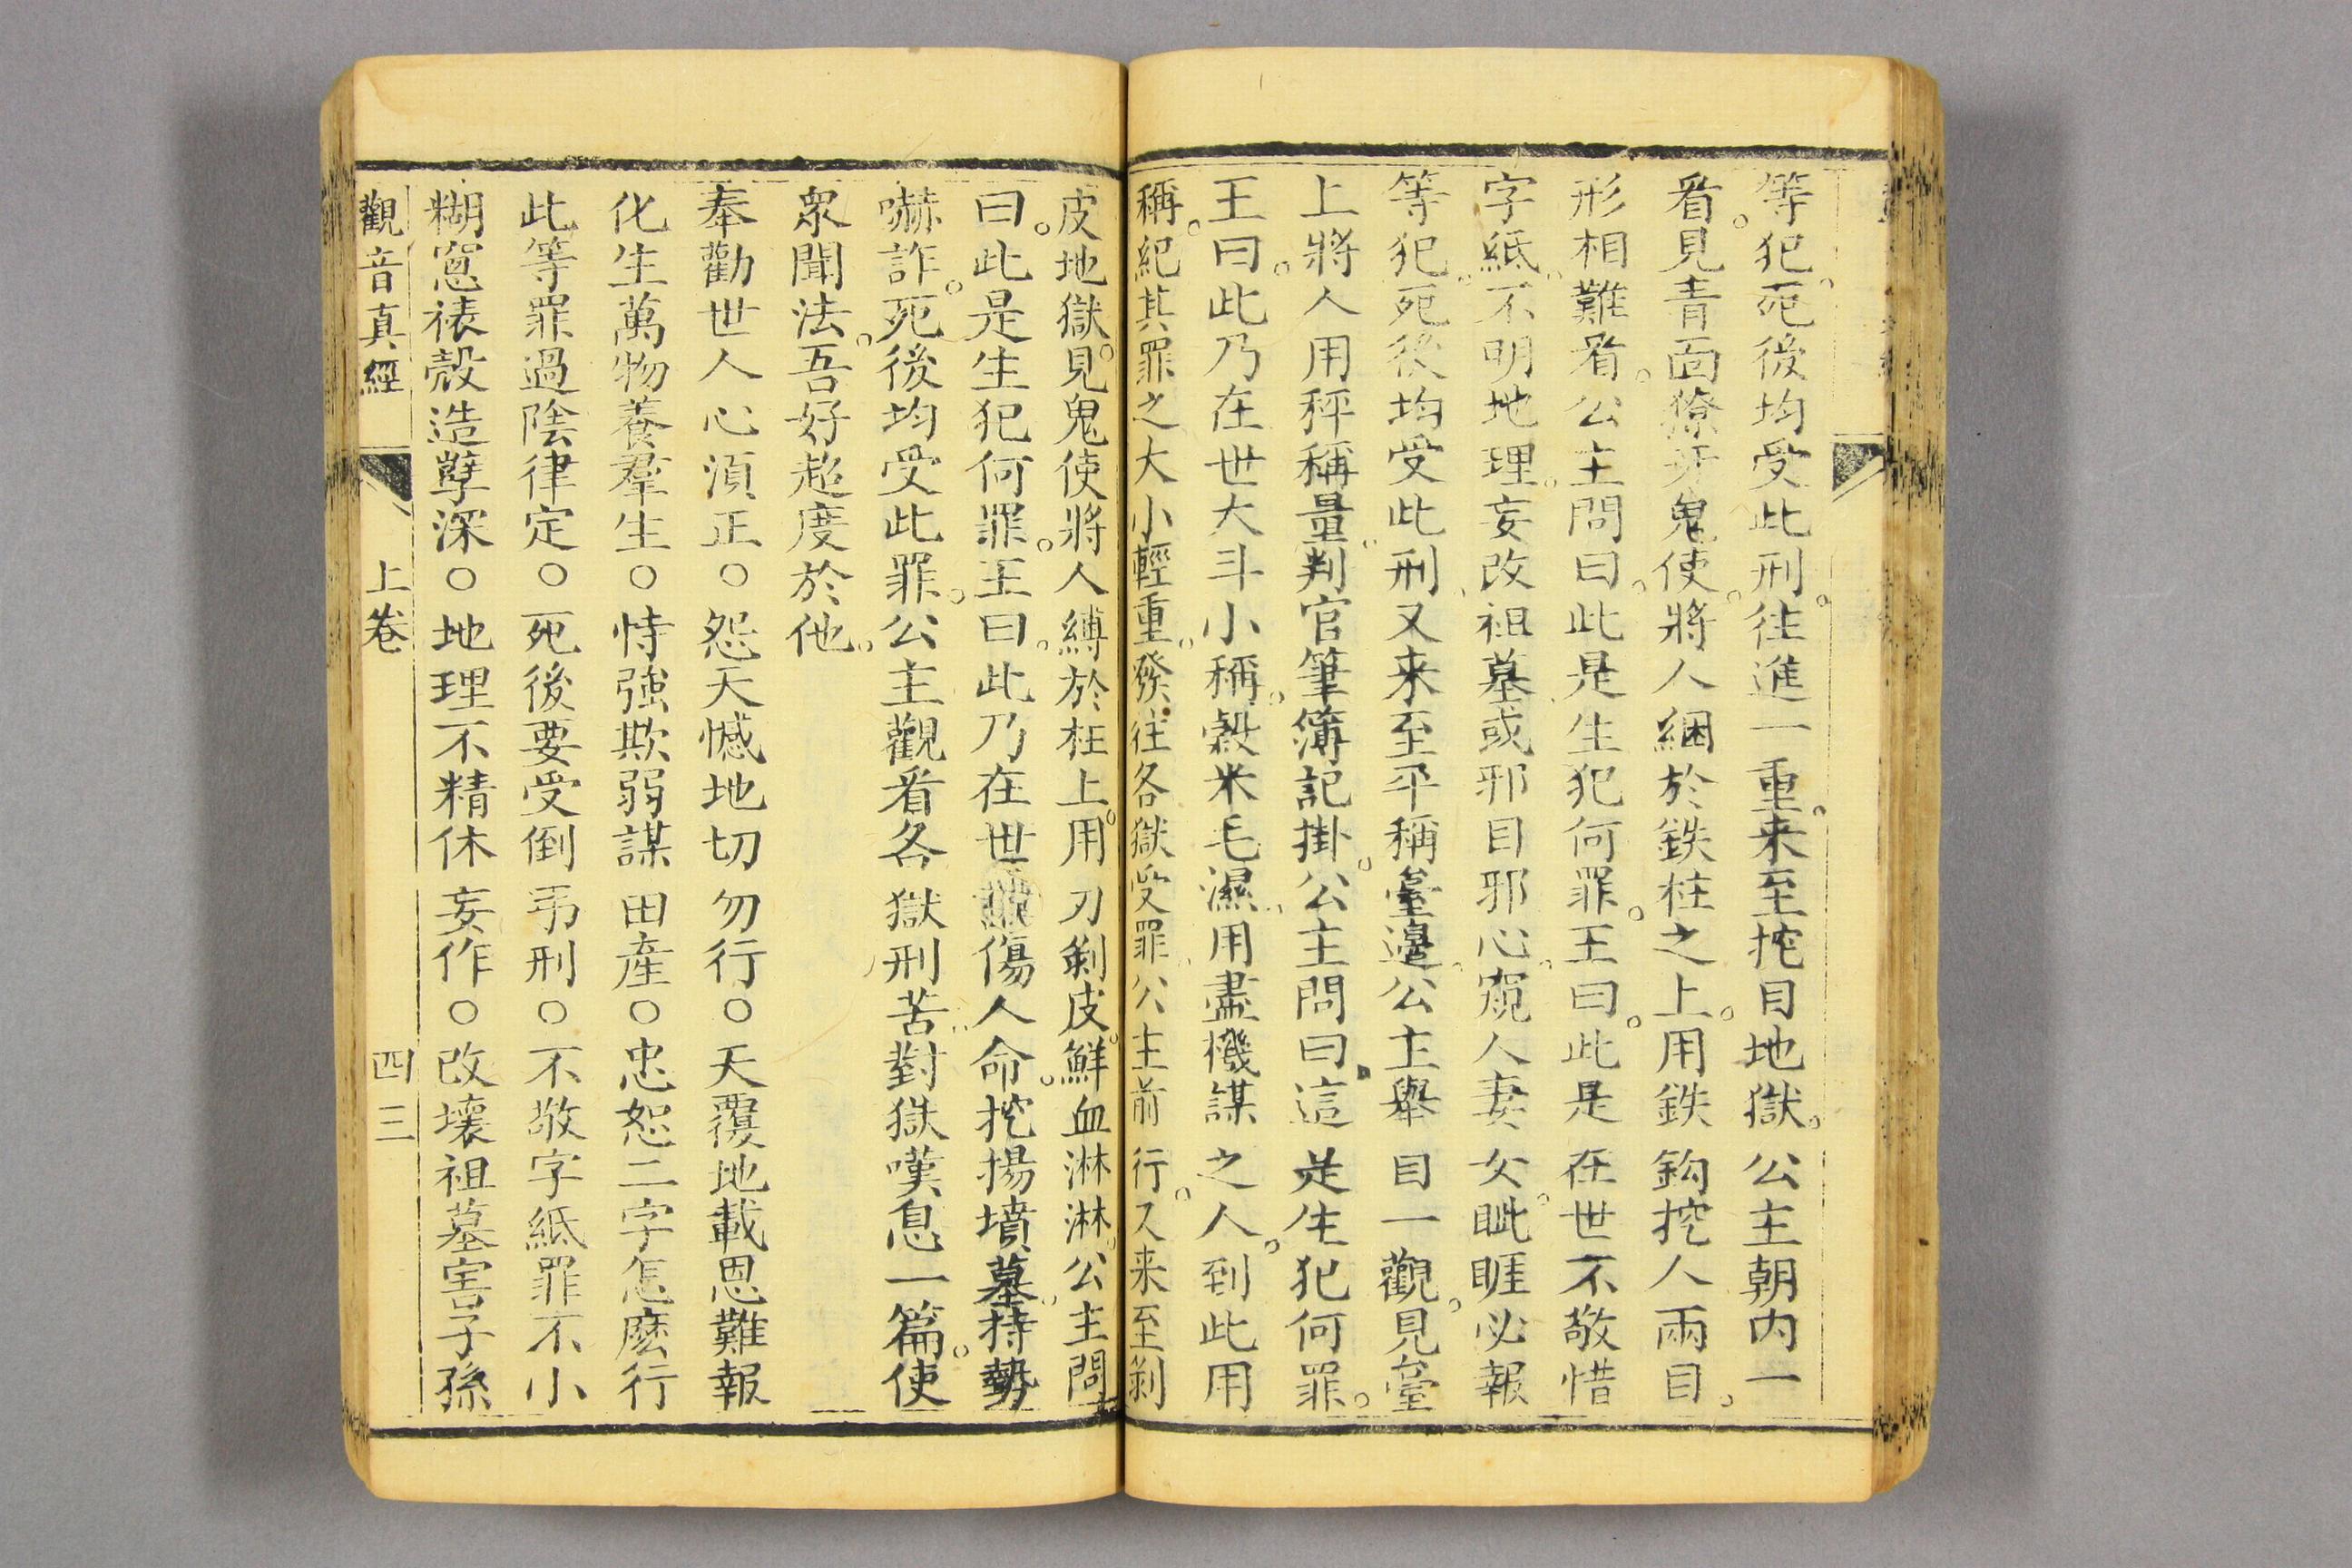 等犯。死後均受此刑。往進一重。来至挖目地獄。公主朝内一
看。見青面獠牙鬼使。將人綑於鉄柱之上。用鉄鈎挖人兩目。
形相難看。公主問曰。此是生犯何罪。王曰。此是在世不敬惜
字紙。不明地理。妄改祖墓。或邪目邪心。窺人妻女。眦睚必報
等犯。死後均受此刑。又来至平稱臺邊。公主舉目一觀。見臺
上將人用秤稱量。判官筆簿記掛。公主問曰。這是生犯何罪。
王曰。此乃在世大斗小稱。穀米毛濕。用盡機謀之人。到此用
稱。紀其罪之大小輕重。發往各獄受罪。公主前行。又来至剝
皮地獄。見鬼使將人縛於柱上。用刀剝皮。鮮血淋淋。公主問
曰。此是生犯何罪。王曰。此乃在世傷人命。挖揚墳墓。持勢
嚇詐。死後均受此罪。公主觀看各獄刑苦。對獄嘆息一篇。使
衆聞法。吾好超度於他。
奉勸世人心須正○怨天憾地切勿行○天覆地載恩難報
化生萬物養羣生○恃強欺弱謀田産○忠恕二字怎麽行
此等罪過陰律定○死後要受倒弔刑○不敬字紙罪不小
糊窓裱殼造孽深○地理不精休妄作○改壞祖墓害子孫
觀音真經 上卷 四三